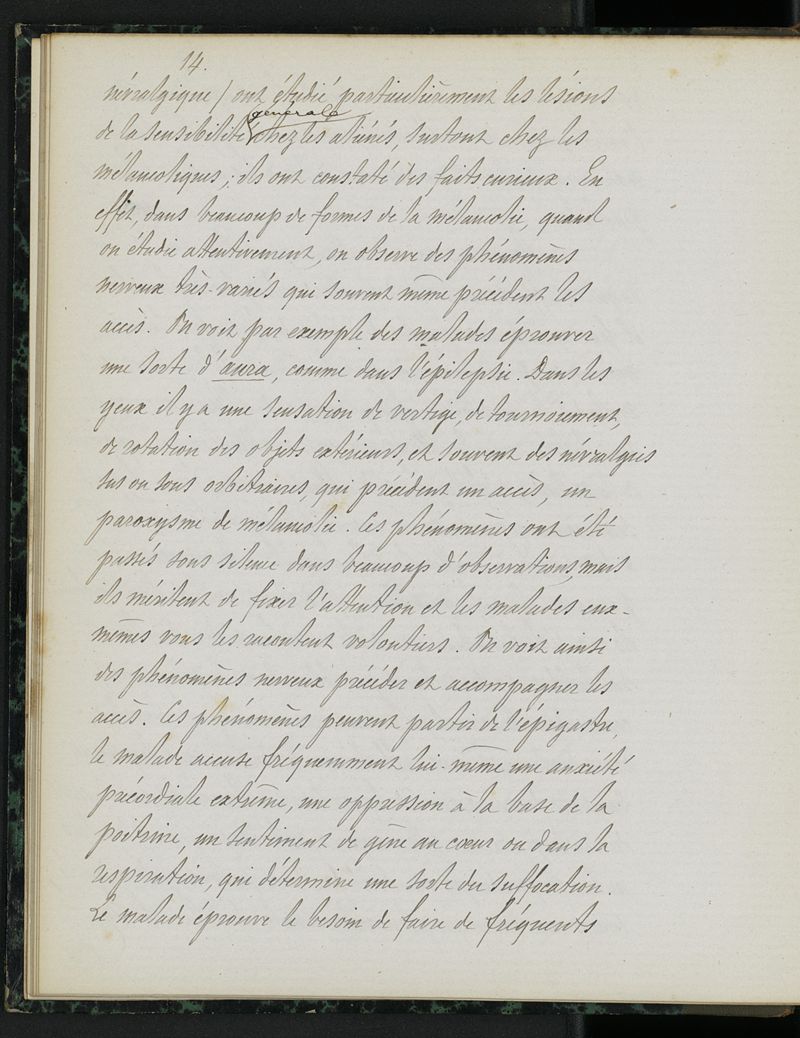 14.
névralgique) ont étudié particulièrement les lésions
générale
de la sensibilité chez les aliénés, surtout chez les
mélancoliques,; ils ont constaté des faits curieux. En
effet, dans beaucoup de formes de la mélancolie, quand
on étudie attentivement, on observe des phénomènes
nerveux très-variés qui souvent même précèdent les
accès. On voit par exemple des malades éprouver
une sorte d'aura, comme dans l'épilepsie. Dans les
yeux il y a une sensation de vertige, de tournoiement,
de rotation des objets extérieurs, et souvent des névralgies
sus ou sous orbitraires, qui précèdent un accès, un
paroxysme de mélancolie. Ces phénomènes ont été
passés sous silence dans beaucoup d'observations, mais
ils méritent de fixer l'attention et les malades eux-
mêmes vous les racontent volontiers. On voit ainsi
des phénomènes nerveux précéder et accompagner les
accès. Ces phénomènes peuvent partir de l'épigastre,
le malade accuse fréquemment lui-même une anxiété
précordiale extrême, une oppression à la base de la
poitrine, un sentiment de gêne au cœur ou dans la
respiration, qui détermine une sorte de suffocation.
Le malade éprouve le besoin de faire de fréquents